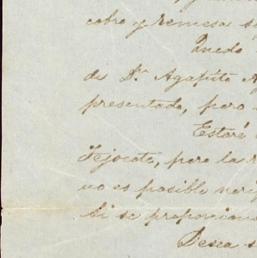 cobro y remesa s
Quedo
de Dn. Agapito A
presentado, pero
Estaré
Tejocote, pero la
no es posible veri
Si se proporciona
Desea s